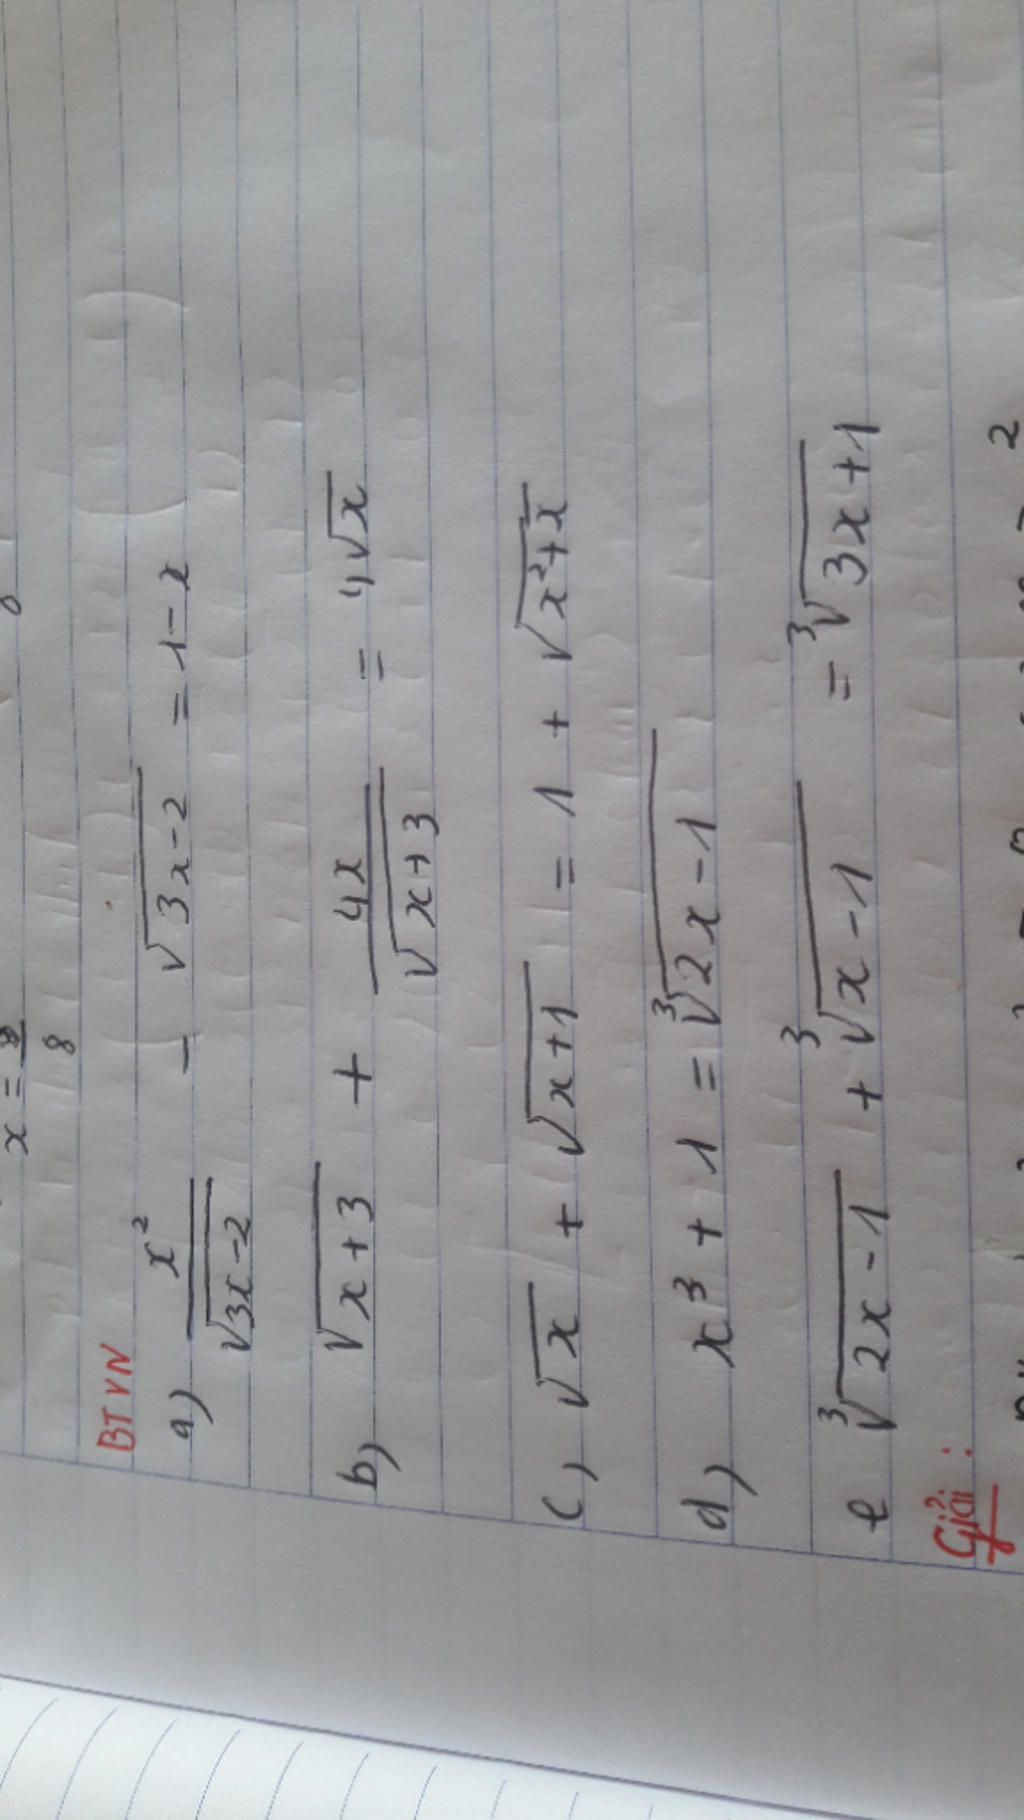 x = 9/8
BTVN
a) x²/√(3x-2) - √(3x-2) = 1-x
b) √(x+3) + 4x/√(x+3) = 4√x
c) √x + √(x+1) = 1 + √(x²+x)
d) x³ + 1 = ³√(2x-1)
e ³√(2x-1) + ³√(x-1) = ³√(3x+1)
Giải :